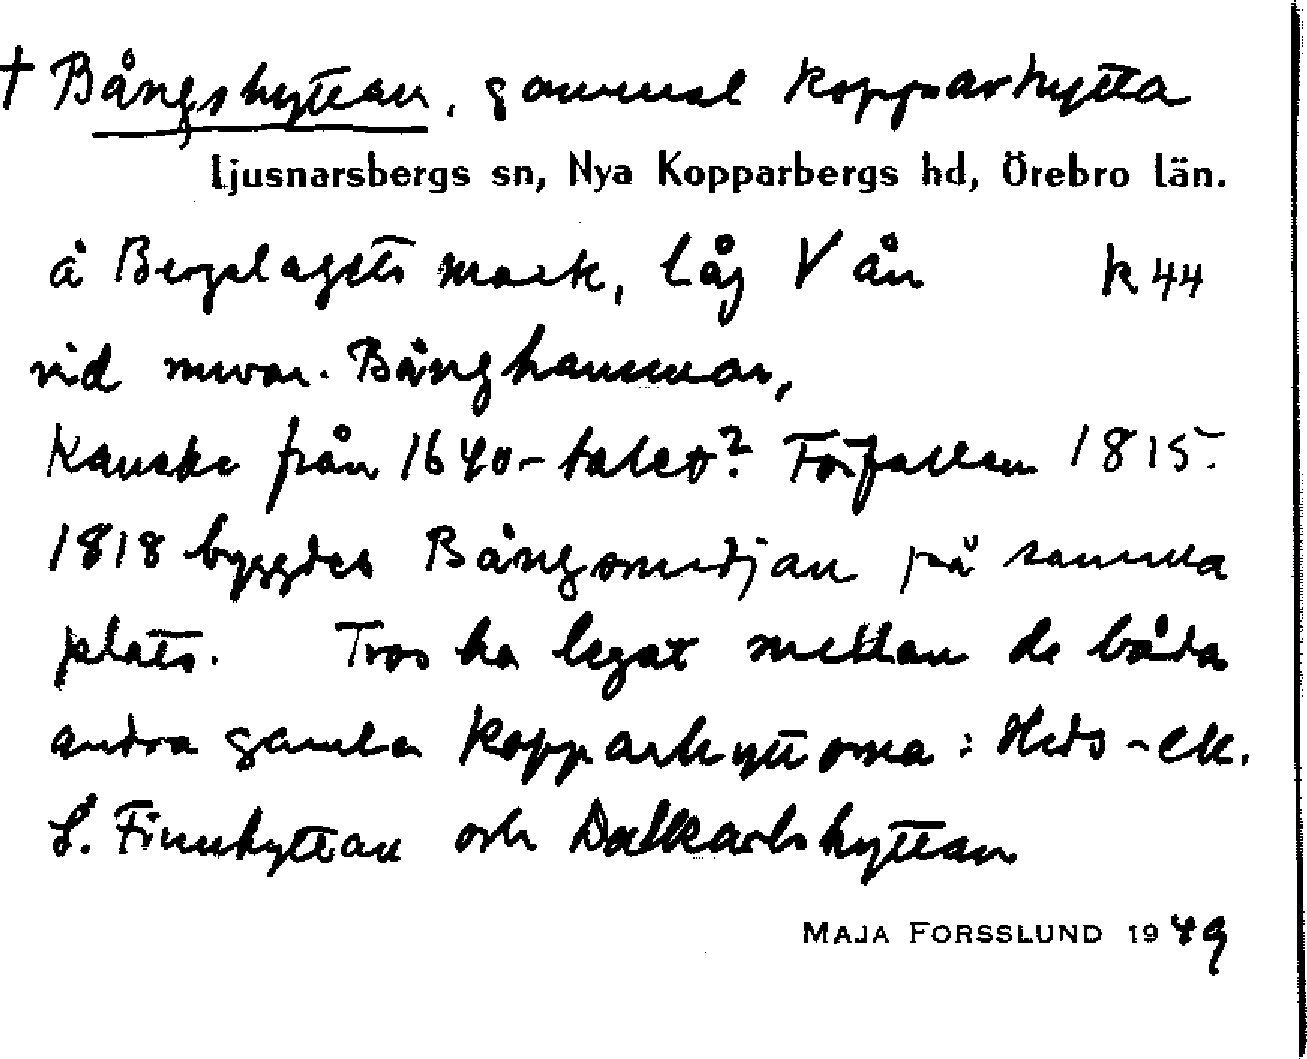 † Bångshyttan, gammal kopparhytta
Ljusnarsbergs sn, Nya Kopparbergs hd, Örebro län.
å Bergslagets mark, låg V ån K 44
vid nuvar. Bånghammar,
Kanske från 1640-talet? Förfallen 1815.
1818 byggdes Bångsmedjan på samma
plats. Tros ha legat mellan de båda
andra gamla kopparhyttorna: Heds- el.
S. Finnhyttan och Dalkarlshyttan
MAJA FORSSLUND 1949